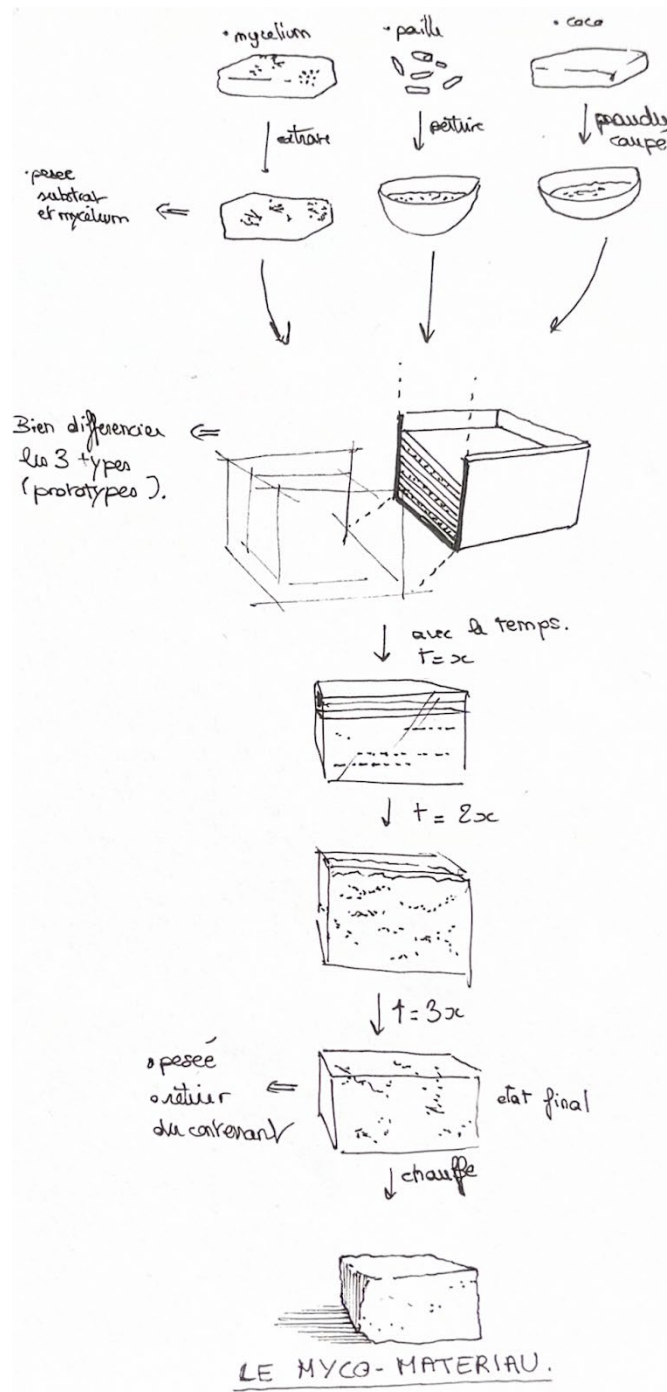 • mycelium
• paille
• coco
extraire
poudre
coupé
• pesée
substrat
et mycélium
Bien differencier
les 3 types
(prototypes).
avec le temps.
t = x
t = 2x
t = 3x
• pesée
• retirer
du contenant
etat final
chauffe
LE MYCO-MATERIAU.